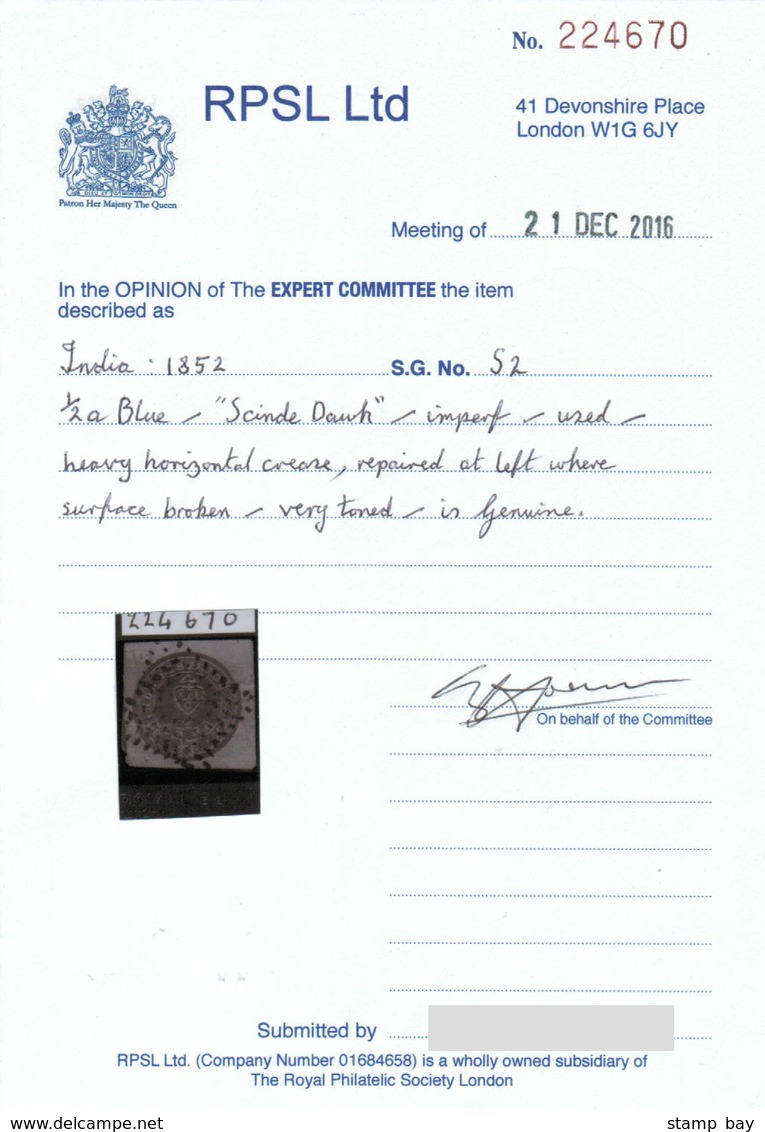 No. 224670
RPSL Ltd
41 Devonshire Place
London W1G 6JY
Patron Her Majesty The Queen
Meeting of 21 DEC 2016
In the OPINION of The EXPERT COMMITTEE the item
described as
India : 1852 S.G. No. S2
½a Blue – "Scinde Dawk" – imperf – used –
heavy horizontal crease, repaired at left where
surface broken – very toned – is Genuine.
224670
On behalf of the Committee
Submitted by
RPSL Ltd. (Company Number 01684658) is a wholly owned subsidiary of
The Royal Philatelic Society London
www.delcampe.net stamp bay